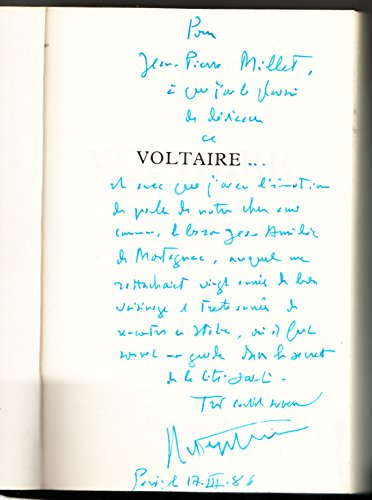 Pour
Jean-Pierre Millet,
à qui j'ai le plaisir
de dédicacer
ce
VOLTAIRE...
et avec qui j'ai eu l'émotion
de parler de notre cher ami
commun, le baron Jean Amédée
de Mortagnac, auquel me
rattachait vingt années de bon
voisinage et trente années de
rencontres en Italie, où il fut
souvent guide dans le secret
de la
Très cordialement
Paris le 17-III-86